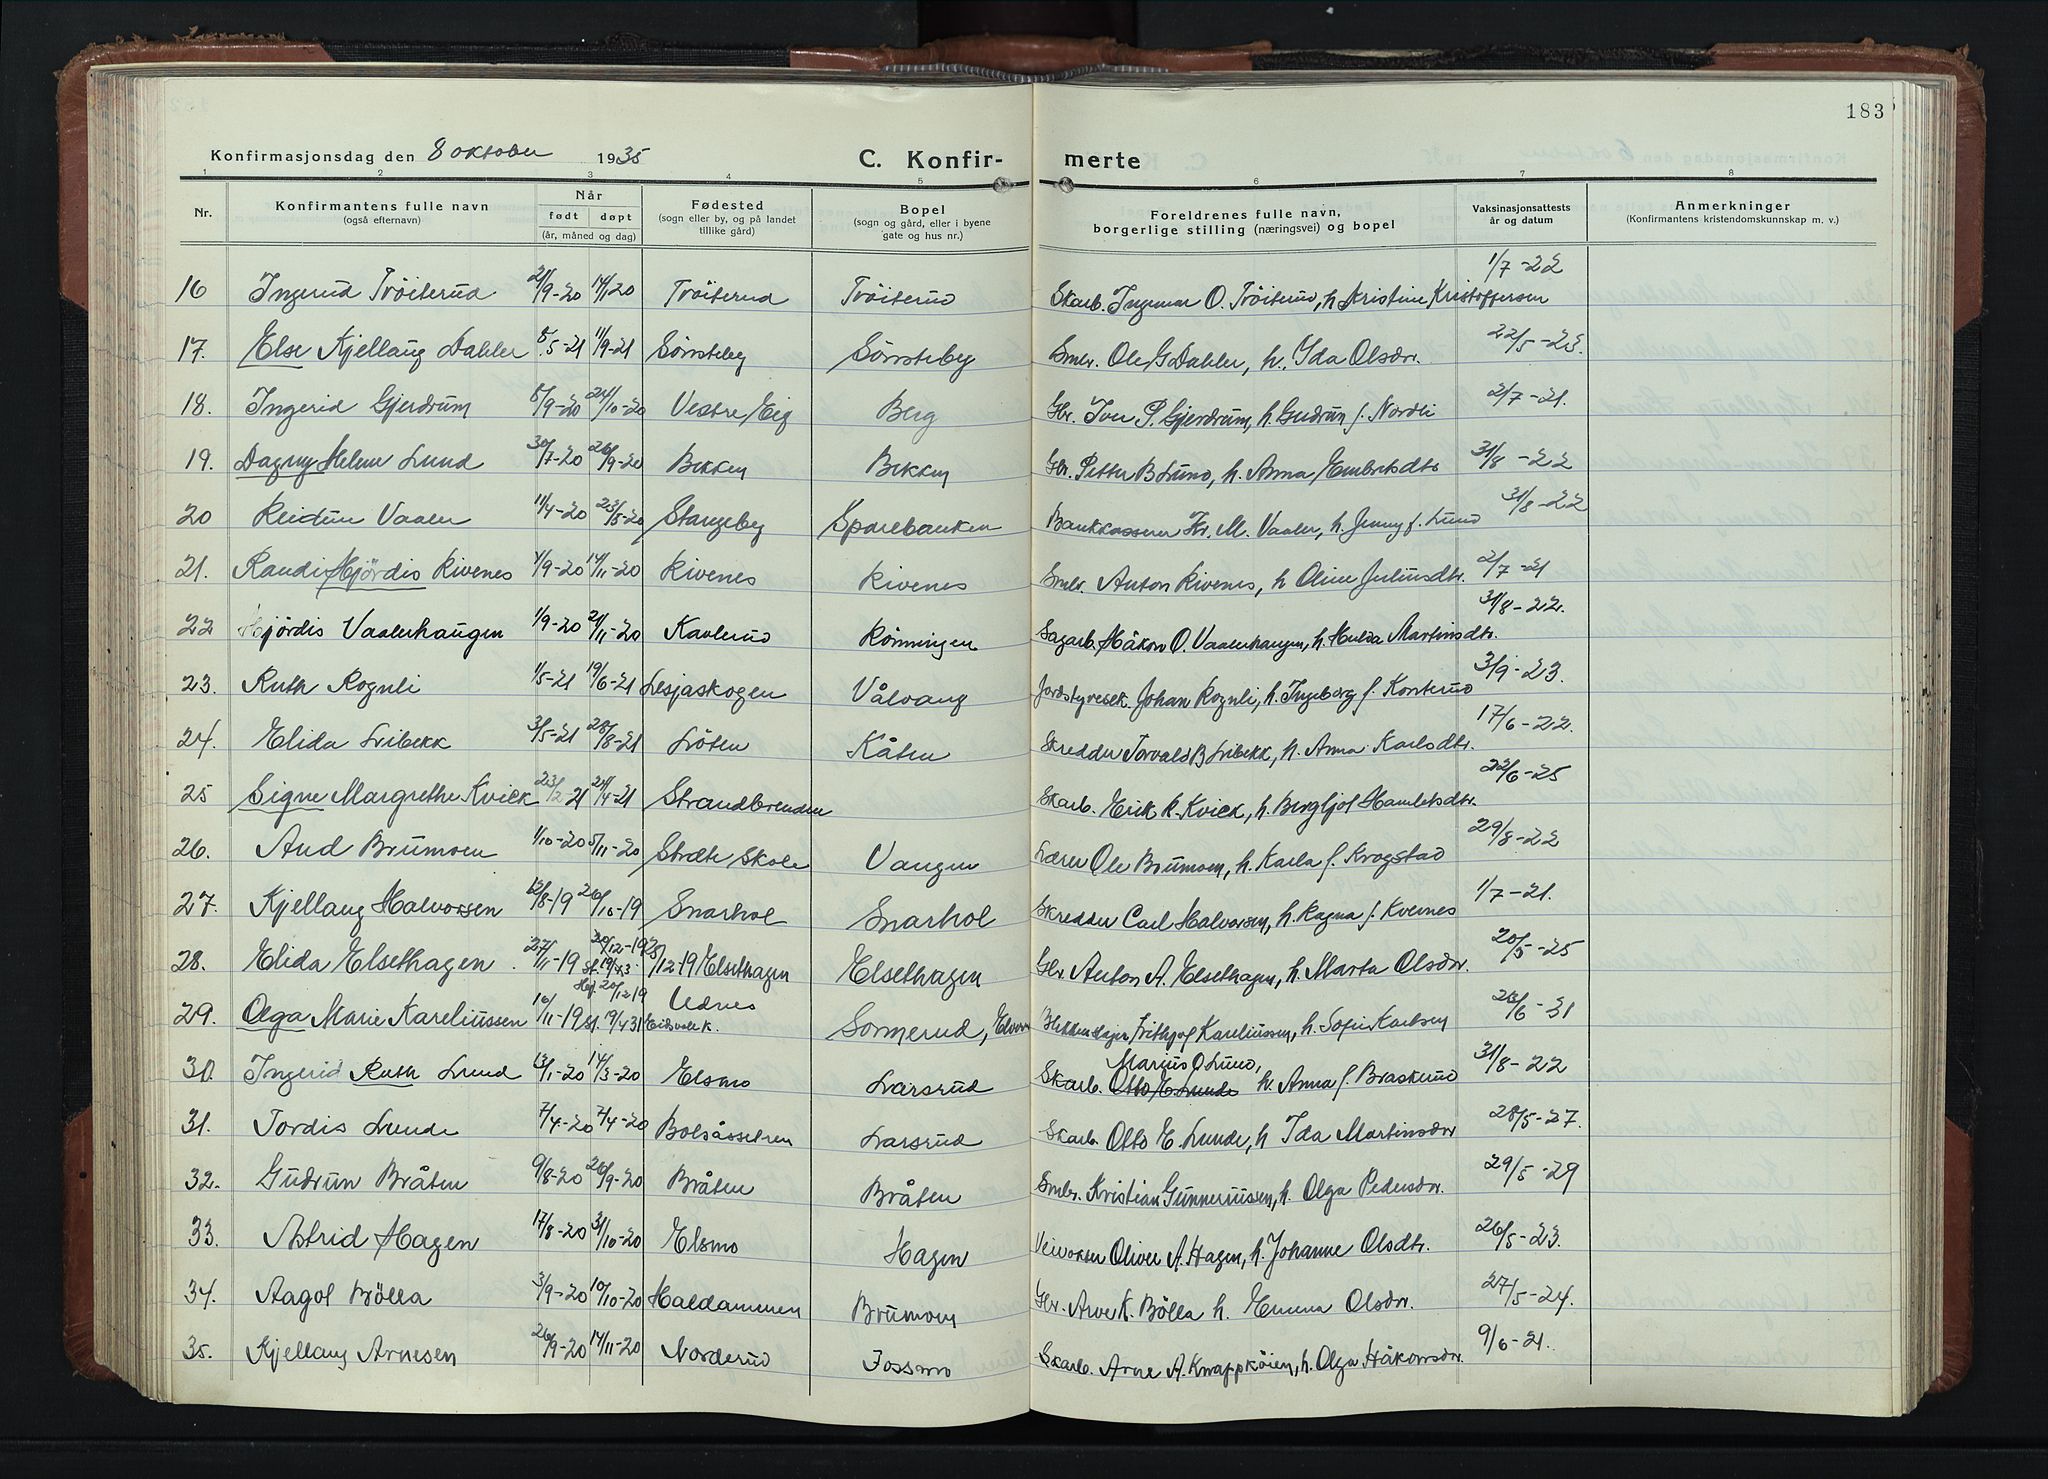 183
Konfirmasjonsdag den 8 oktober 1935 C. Konfir- merte
1 2 3 4 5 6 7 8
Nr. Konfirmantens fulle navn (også efternavn) Når født døpt (år, måned og dag) Fødested (sogn eller by, og på landet tillike gård) Bopel (sogn og gård, eller i byene gate og hus nr.) Foreldrenes fulle navn, borgerlige stilling (næringsvei) og bopel Vaksinasjonsattests år og datum Anmerkninger (Konfirmantens kristendomskunnskap m. v.)
16 Ingerid Tröiterud 21/9-20 14/11 20 Tröiterud Tröiterud Skarb. Ingemar O. Tröiterud, h. Kristine Kristoffersen 1/7-22
17. Else Kjellaug Dahler 8/5-21 11/9-21 Sörsteby Sörsteby Smbr. Ole G Dahler, h. Ida Olsdr. 22/5-23.
18. Ingerid Gjerdrum 8/9-20 24/10-20 Vestre Eig Berg Gbr. Iver P. Gjerdrum, h. Gudrun f. Nordli 2/7-21.
19. Dagny Helene Lund 30/7-20 26/9-20 Bekken Bekken Gbr. Petter B Lund, h. Anna Embretsdtr 31/8-22
20 Reidun Vaaler 11/4-20 23/5-20 Stangeby Sparebanken Bankkasserer Kr. M. Vaaler, h. Jenny f. Lund 31/8-22
21. Randi Hjördis Kivenes 4/9-20 14/11-20 Kivenes Kivenes Smbr. Anton Kivenes, h Oline Juliusdtr. 2/7-21
22 Hjördis Vaalerhaugen 1/9-20 21/11-20 Kavlerud Rönningen Sagarb. Håkon O. Vaalerhaugen, h. Hulda Martinsdtr. 31/8-22.
23. Ruth Rognli 1/5-21 19/6-21 Lesjaskogen Vålvang Jordstyresek. Johan Rognli, h. Ingeborg f. Konterud 3/9-23.
24. Elida Libekk 3/5-21 28/8-21 Löten Kåten Skredder Torvald B Libekk, h. Anna Karlsdtr. 17/6-22.
25 Signe Margrethe Kvick 23/2-21 24/4-21 Strandbrenden Skarb. Erik K. Kvick, h. Bergljot Hamletsdtr. 22/6-25
26. Aud Brumoen 1/10-20 5/11-20 Stræte Skole Vangen Lærer Ole Brumoen, h. Karla f. Krogstad 29/8-22
27. Kjellaug Halvorsen 12/8-19 26/10-19 Snarhol Snarhol Skredder Carl Halvorsen, h. Ragna f. Kvernes 1/7-21.
28. Elida Elsethagen 27/11-19 20/12-19 st. 19/4 3. 12 19 Elsethagen Elsethagen Gbr Anton A. Elsethagen, h. Marta Olsdr. 20/5-25
29. Olga Marie Kareliussen 10/11-19 Hf. 20/12 19 st. 19/4 31 Udnes Eidsvoll k. Sormerud, Blikkenslager Frithjof Kareliussen, h. Sofie Karlsen 26/6-31
30. Ingerid Ruth Lund 13/1-20 14/3-20 Elsmo Larsrud Skarb. Otto E. Lunde Marius O Lund, h. Anna f. Braskerud 31/8-22
31. Tordis Lunde 7/4-20 7/4-20 Bolsåssetren Larsrud Skarb. Otto E. Lunde, h Ida Martinsdtr 28/5-27.
32. Gudrun Bråten 9/8-20 26/9-20 Bråten Bråten Smbr. Kristian Gunneriussen, h. Olga Pedersdr. 29/5-29
33. Astrid Hagen 17/8-20 31/10-20 Elsmo Hagen Veivokter Oliver A. Hagen, h. Johanne Olsdtr. 26/5-23.
34. Aagot Bölla 3/9-20 10/10-20 Haldammen Brumoen Gbr. Arve K. Bölla h. Emma Olsdr. 27/5-24.
35. Kjellaug Arnesen 26/9-20 14/11-20 Norderud Jossmo Skarb. Arne A. Knappköien, h. Olga Håkonsdr. 9/6-21.